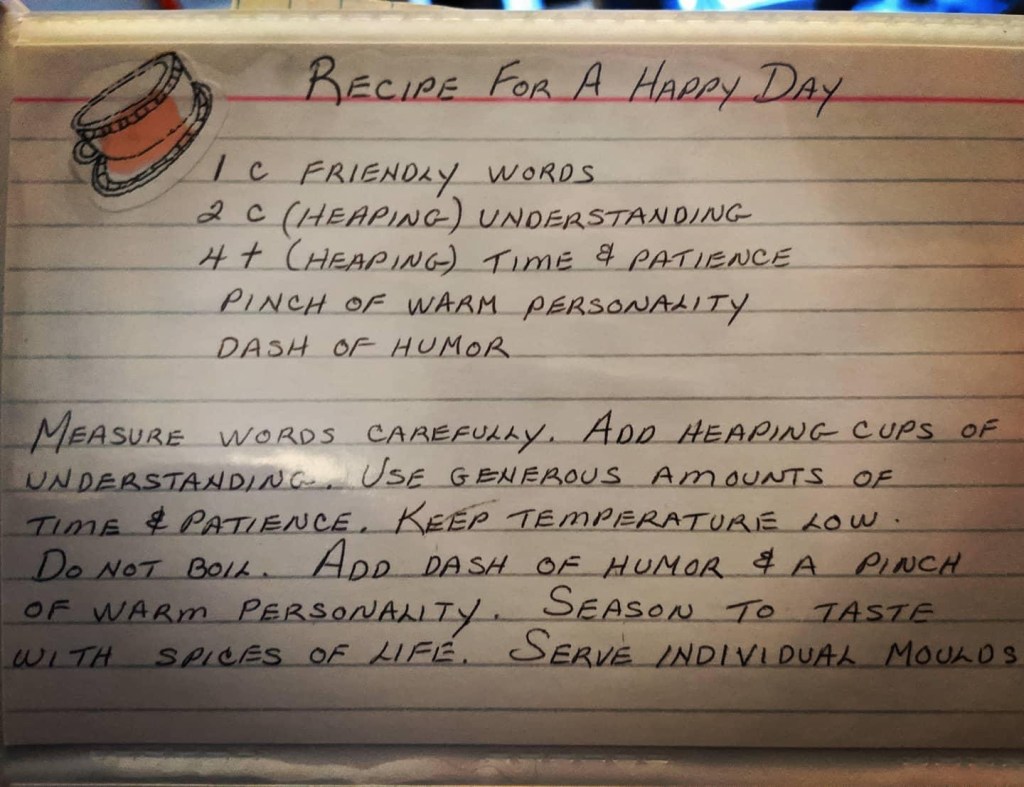 RECIPE FOR A HAPPY DAY
1 C FRIENDLY WORDS
2 C (HEAPING) UNDERSTANDING
4 t (HEAPING) TIME & PATIENCE
PINCH OF WARM PERSONALITY
DASH OF HUMOR
MEASURE WORDS CAREFULLY. ADD HEAPING CUPS OF
UNDERSTANDING. USE GENEROUS AMOUNTS OF
TIME & PATIENCE. KEEP TEMPERATURE LOW.
DO NOT BOIL. ADD DASH OF HUMOR & A PINCH
OF WARM PERSONALITY. SEASON TO TASTE
WITH SPICES OF LIFE. SERVE INDIVIDUAL MOULDS